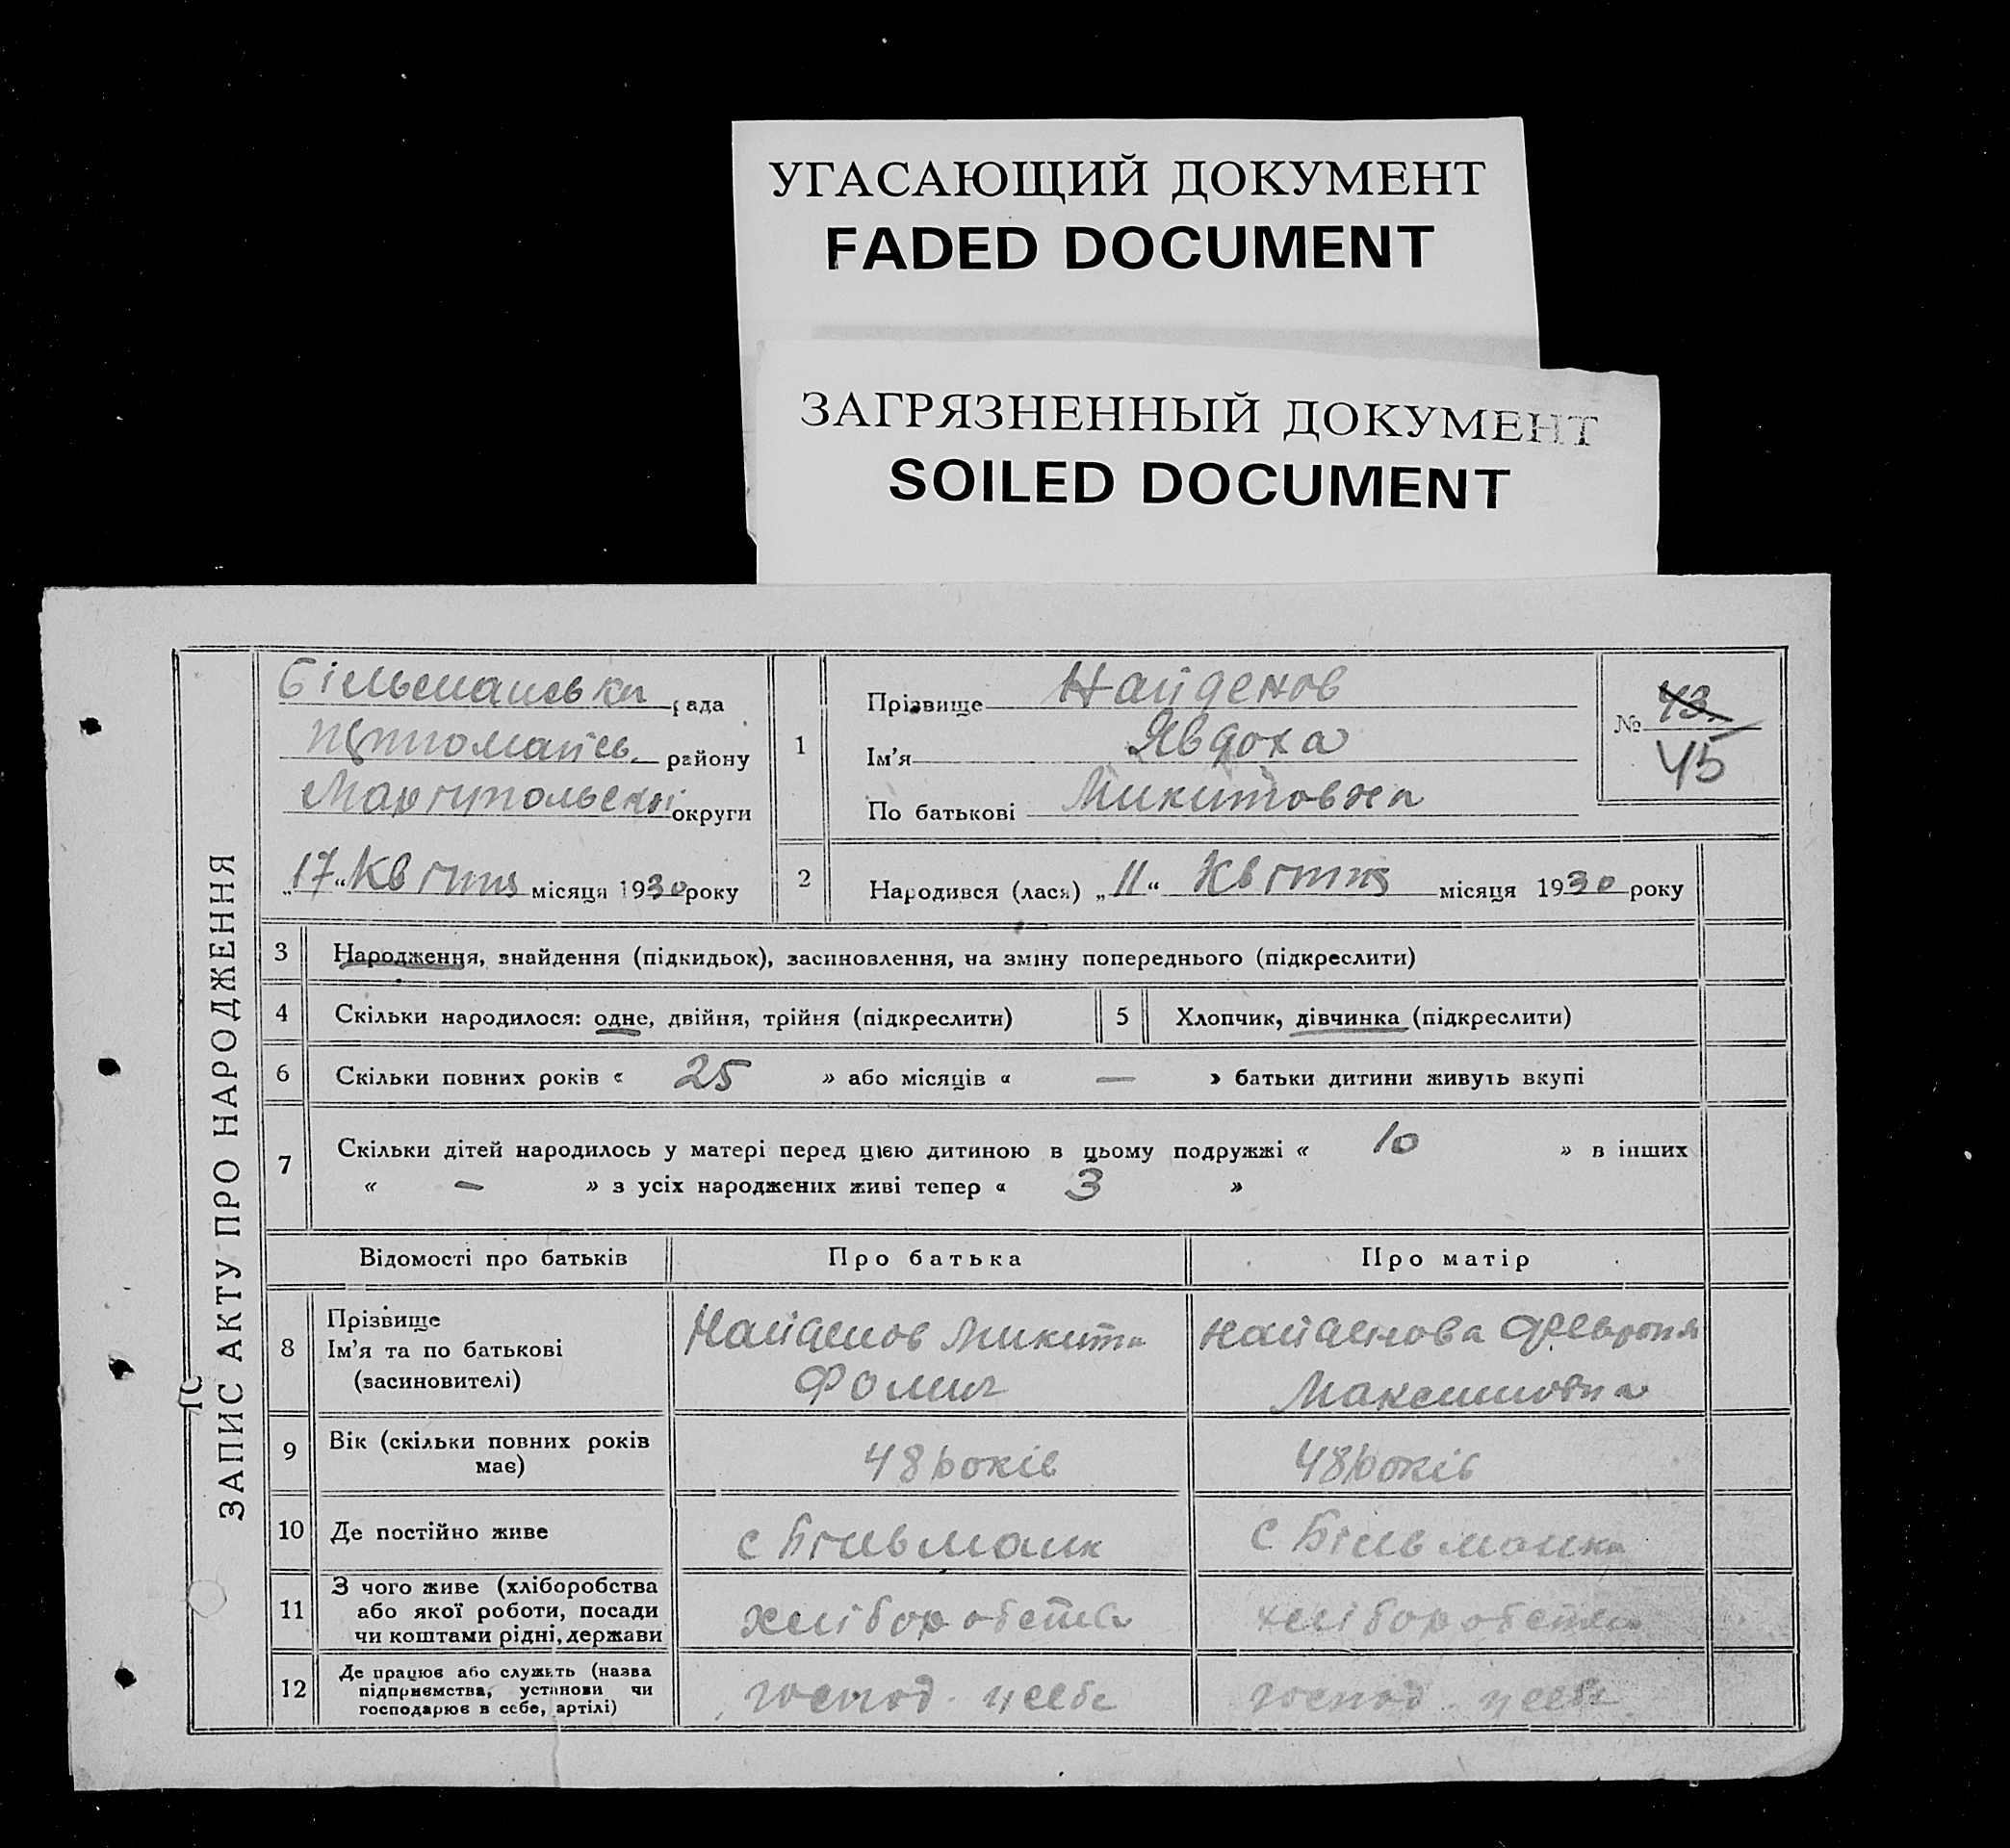 УГАСАЮЩИЙ ДОКУМЕНТ
FADED DOCUMENT
ЗАГРЯЗНЕННЫЙ ДОКУМЕНТ
SOILED DOCUMENT
ЗАПИС АКТУ ПРО НАРОДЖЕННЯ
Більманська рада
району
Маріупольської округи
„17“ Квітня місяця 1930 року
1
Прізвище Найденов
Ім'я Явдоха
По батькові Микитовна
№ 43
45
2
Народився (лася) „11“ Квітня місяця 1930 року
3 Народження, знайдення (підкидьок), засиновлення, на зміну попереднього (підкреслити)
4 Скільки народилося: одне, двійня, трійня (підкреслити) 5 Хлопчик, дівчинка (підкреслити)
6 Скільки повних років « 25 » або місяців « — » батьки дитини живуть вкупі
7 Скільки дітей народилось у матері перед цією дитиною в цьому подружжі « 10 » в інших
« — » з усіх народжених живі тепер « 3 »
Відомості про батьків Про батька Про матір
8 Прізвище
Ім'я та по батькові
(засиновителі)
Найденов Микита
Фомич
Найденова Феврония
Максимовна
9 Вік (скільки повних років
має)
48 років 48 років
10 Де постійно живе с Більманк с Більманка
11 З чого живе (хліборобства
або якої роботи, посади
чи коштами рідні, держави
хліборобства хліборобства
12 Де працює або служить (назва
підприємства, установи чи
господарює в себе, артілі)
господ. у себе господ. у себе